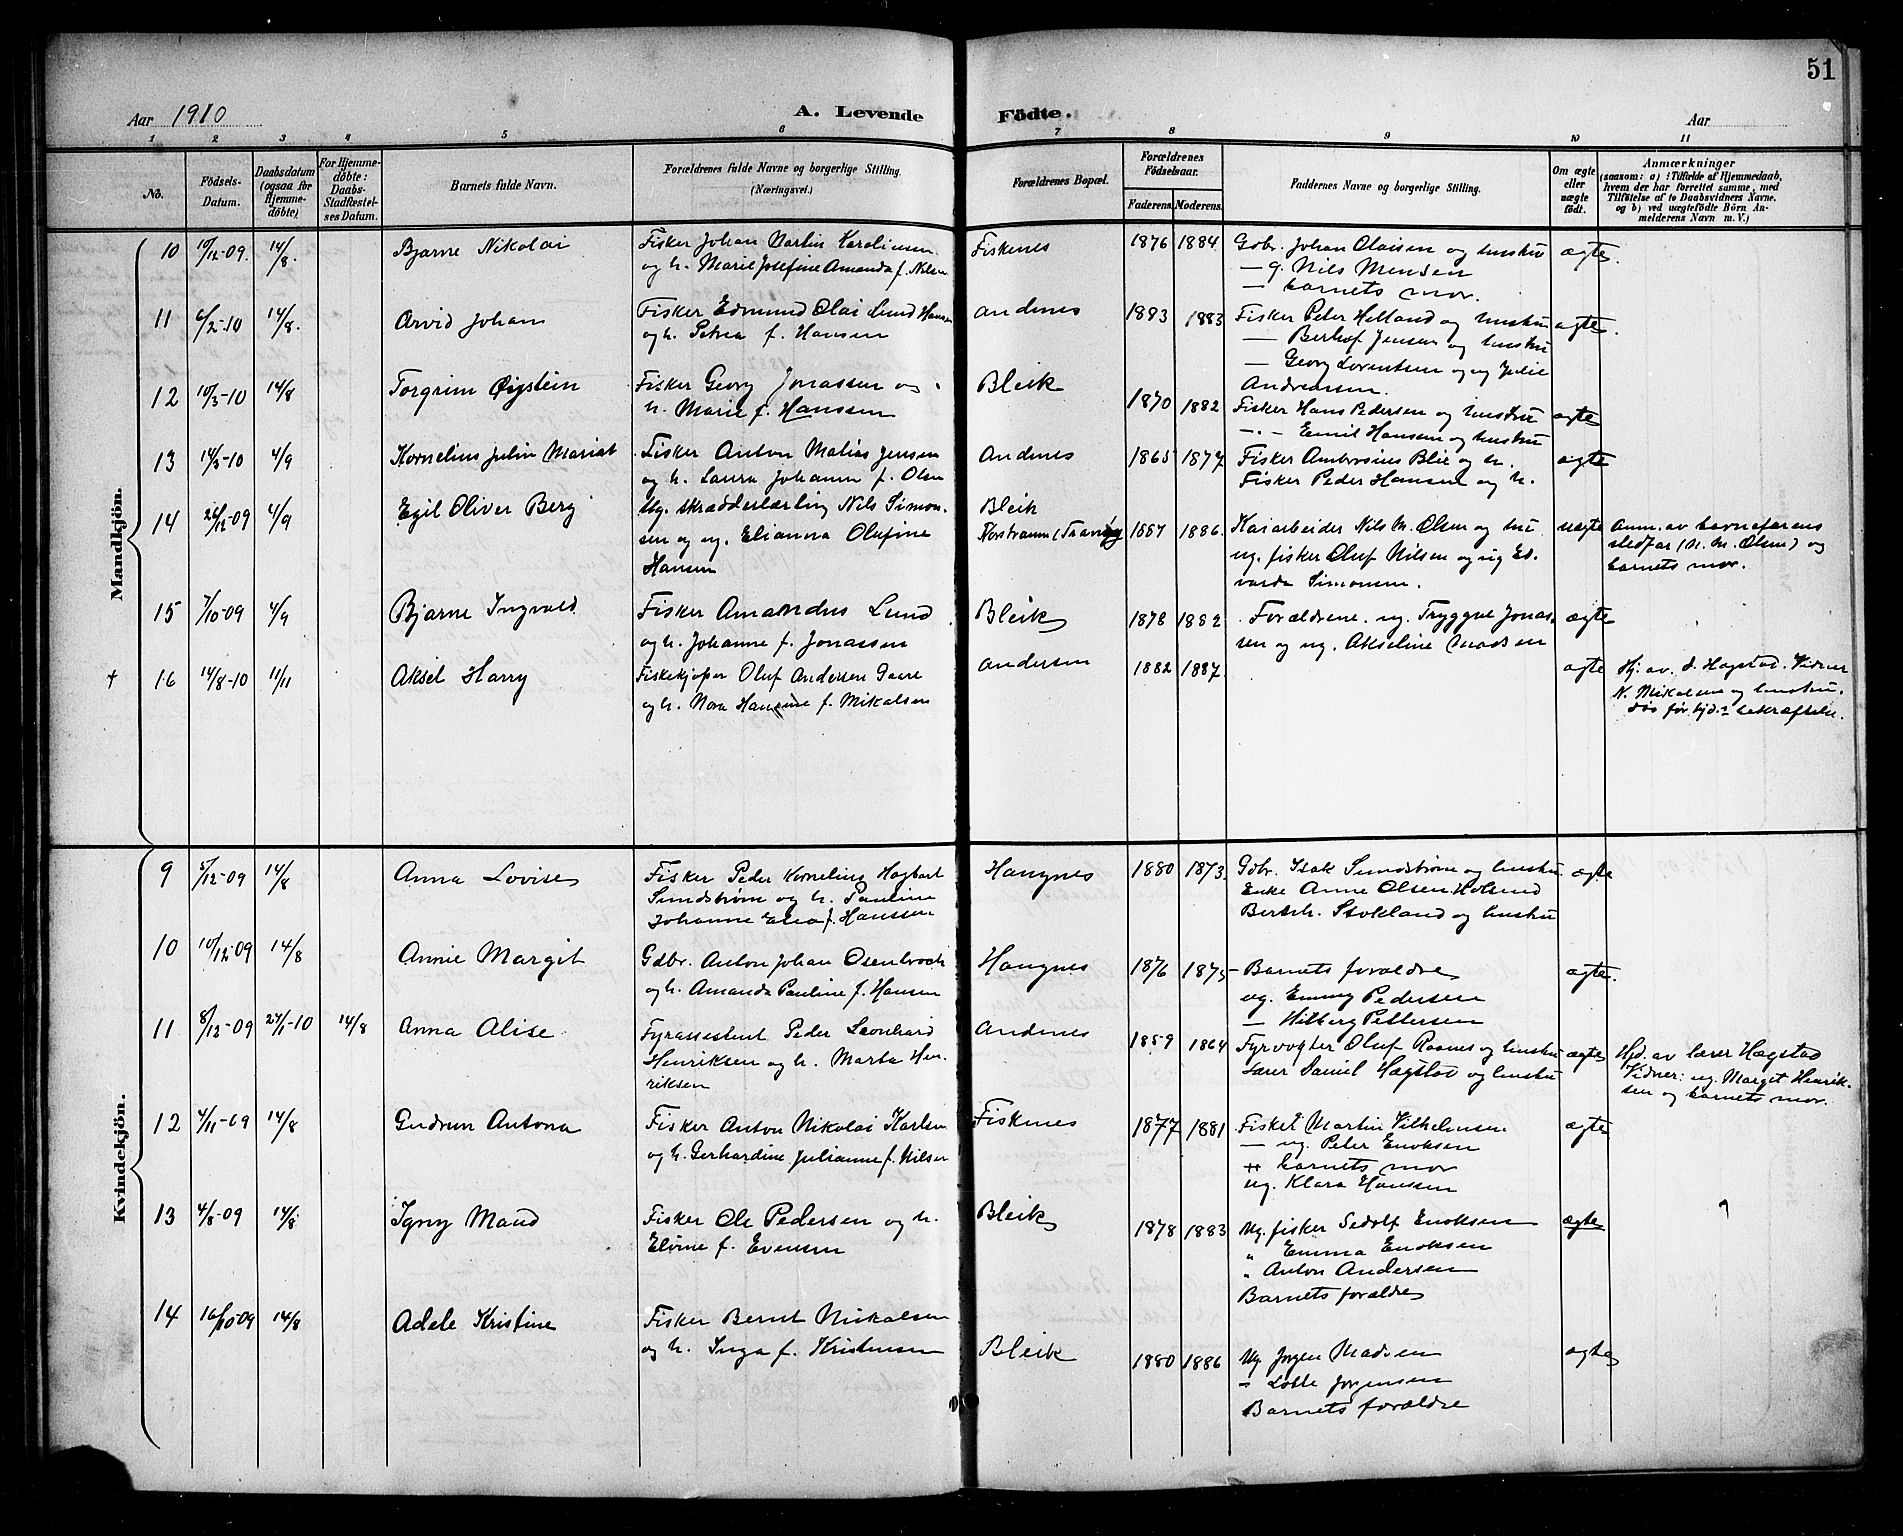 51
Aar 1910
A. Levende Födte.
Aar
1 2 3 4 5 6 7 8 9 10 11
No.
Födsels-Datum.
Daabsdatum (ogsaa for Hjemme-döbte)
For Hjemme-döbte: Daabs-Stadfæstel-ses Datum.
Barnets fulde Navn.
Forældrenes fulde Navne og borgerlige Stilling.
(Næringsvei.)
Forældrenes Bopæl.
Forældrenes Födselsaar.
Faderens. Moderens.
Faddernes Navne og borgerlige Stilling.
Om ægte eller uægte födt.
Anmærkninger
(saasom: a) i Tilfælde af Hjemmedaab, hvem der har forrettet samme, med Tilföielse af to Daabsvidners Navne, og b) ved uægtefödte Börn Anmelderens Navn m. V.)
Mandkjön.
10 10/12-09. 14/8. Bjarne Nikolai Fisker Johan Martin Karolinsen Fiskenes 1876 1884 Gdbr. Johan Olaisen og hustru ægte.
og h. Marie Josefine Amanda f. Nilsen — g. Nils Monsen
— barnets mor.
11 6/2-10 14/8. Arvid Johan Fisker Edmund Olai Lund Hansen Andenes 1883 1883 Fisker Peter Helland og hustru ægte.
og h. Petra f. Hansen — Berhof Jensen og hustru
— Georg Lorentsen og ug Julie
Andreassen.
12 10/3-10 14/8 Torgrim Øistein Fisker Georg Jonassen og Bleik 1870 1882 Fisker Hans Pedersen og hustru ægte
h. Marie f. Hanssen — Emil Hansen og hustru
13 14/3-10 4/9 Kornelius Julin Mariat Fisker Anton Matias Jensen Andenes 1865 1877 Fisker Ambrosius Blie og h. ægte
og h. Laura Johanna f. Olsen Fisker Peder Hansen og h.
14 26/12-09 4/9 Egil Oliver Berg Ug. skrædderlærling Nils Simon- Bleik
sen og ug. Elianna Olufine 1887 1886. Kaiarbeider Nils M. Olsen og hu uægte Anm. av barnefarens
Hansen ug. fisker Oluf Nilsen og ug Ed- stedfar (N. M. Olsen) og
varda Simonsen. barnets mor.
15 7/10-09 4/9 Bjarne Ingvald Fisker Amandus Lund Bleik 1878 1882 Forældrene. ug. Tryggve Jonas- ægte
og h. Johanne f. Jonassen sen og ug. Akseline Madsen
† 16 14/8-10 11/11 Aksel Harry Fiskekjøper Oluf Andersen Andersen 1882 1887. ægte Hj. av D. Hagstad. Vidner
og h. Nora Hansine f. Mikalsen N. Mikalsen og hustru.
Død før hjd.s bekræftelse.
Kvindekjön.
9 5/12-09 14/8 Anna Lovise Fisker Peder Kornelius Hagbart Haugnes 1880 1873. Gdbr. Isak Sundstrøm og hustru ægte
Sundstrøm og h. Pauline Enke Anne Olsen
Johanne Elea f. Hanssen Bertch. Stokland og hustru
10 10/12-09 14/8 Annie Margit Gdbr. Anton Johan Osenbroch Haugnes 1876 1875 Barnets forældre ægte.
og h. Amanda Pauline f. Hansen ug. Emmy Pedersen
— Hilberg Pettersen
11 8/12-09 27/1-10 14/8 Anna Alise Fyrassistent Peder Leonhard Andenes 1859 1864 Fyrvogter Oluf Raanes og hustru ægte Hjd. av lærer Hægstad
Henriksen og h. Marta Hen- Lærer Daniel Hægstad og hustru Vidner: ug. Marget Henrik-
riksen sen og barnets mor.
12 4/11-09 14/8 Gudrun Antona Fisker Anton Nikolai Karlsen Fiskenes 1877 1881 Fisker Martin Vilhelmsen ægte
og h. Gerhardine Julianne f. Nilsen — ug. Peter Enoksen
barnets mor
ug. Klara Hansen
13 4/8-09 14/8 Igny Maud Fisker Ole Pedersen og h. Bleik 1878 1883 Ug. fisker Sedolf Enoksen ægte
Elvine f. Evensen " Emma Enoksen
" Anton Andersen
Barnets forældre
14 16/10-09 14/8 Adele Kristine Fisker Bernt Nikolalsen
og h. Inga f. Kristensen Bleik 1880 1886 Ug. Jørgen Madsen ægte
— Lotte Jørgensen
Barnets forældre